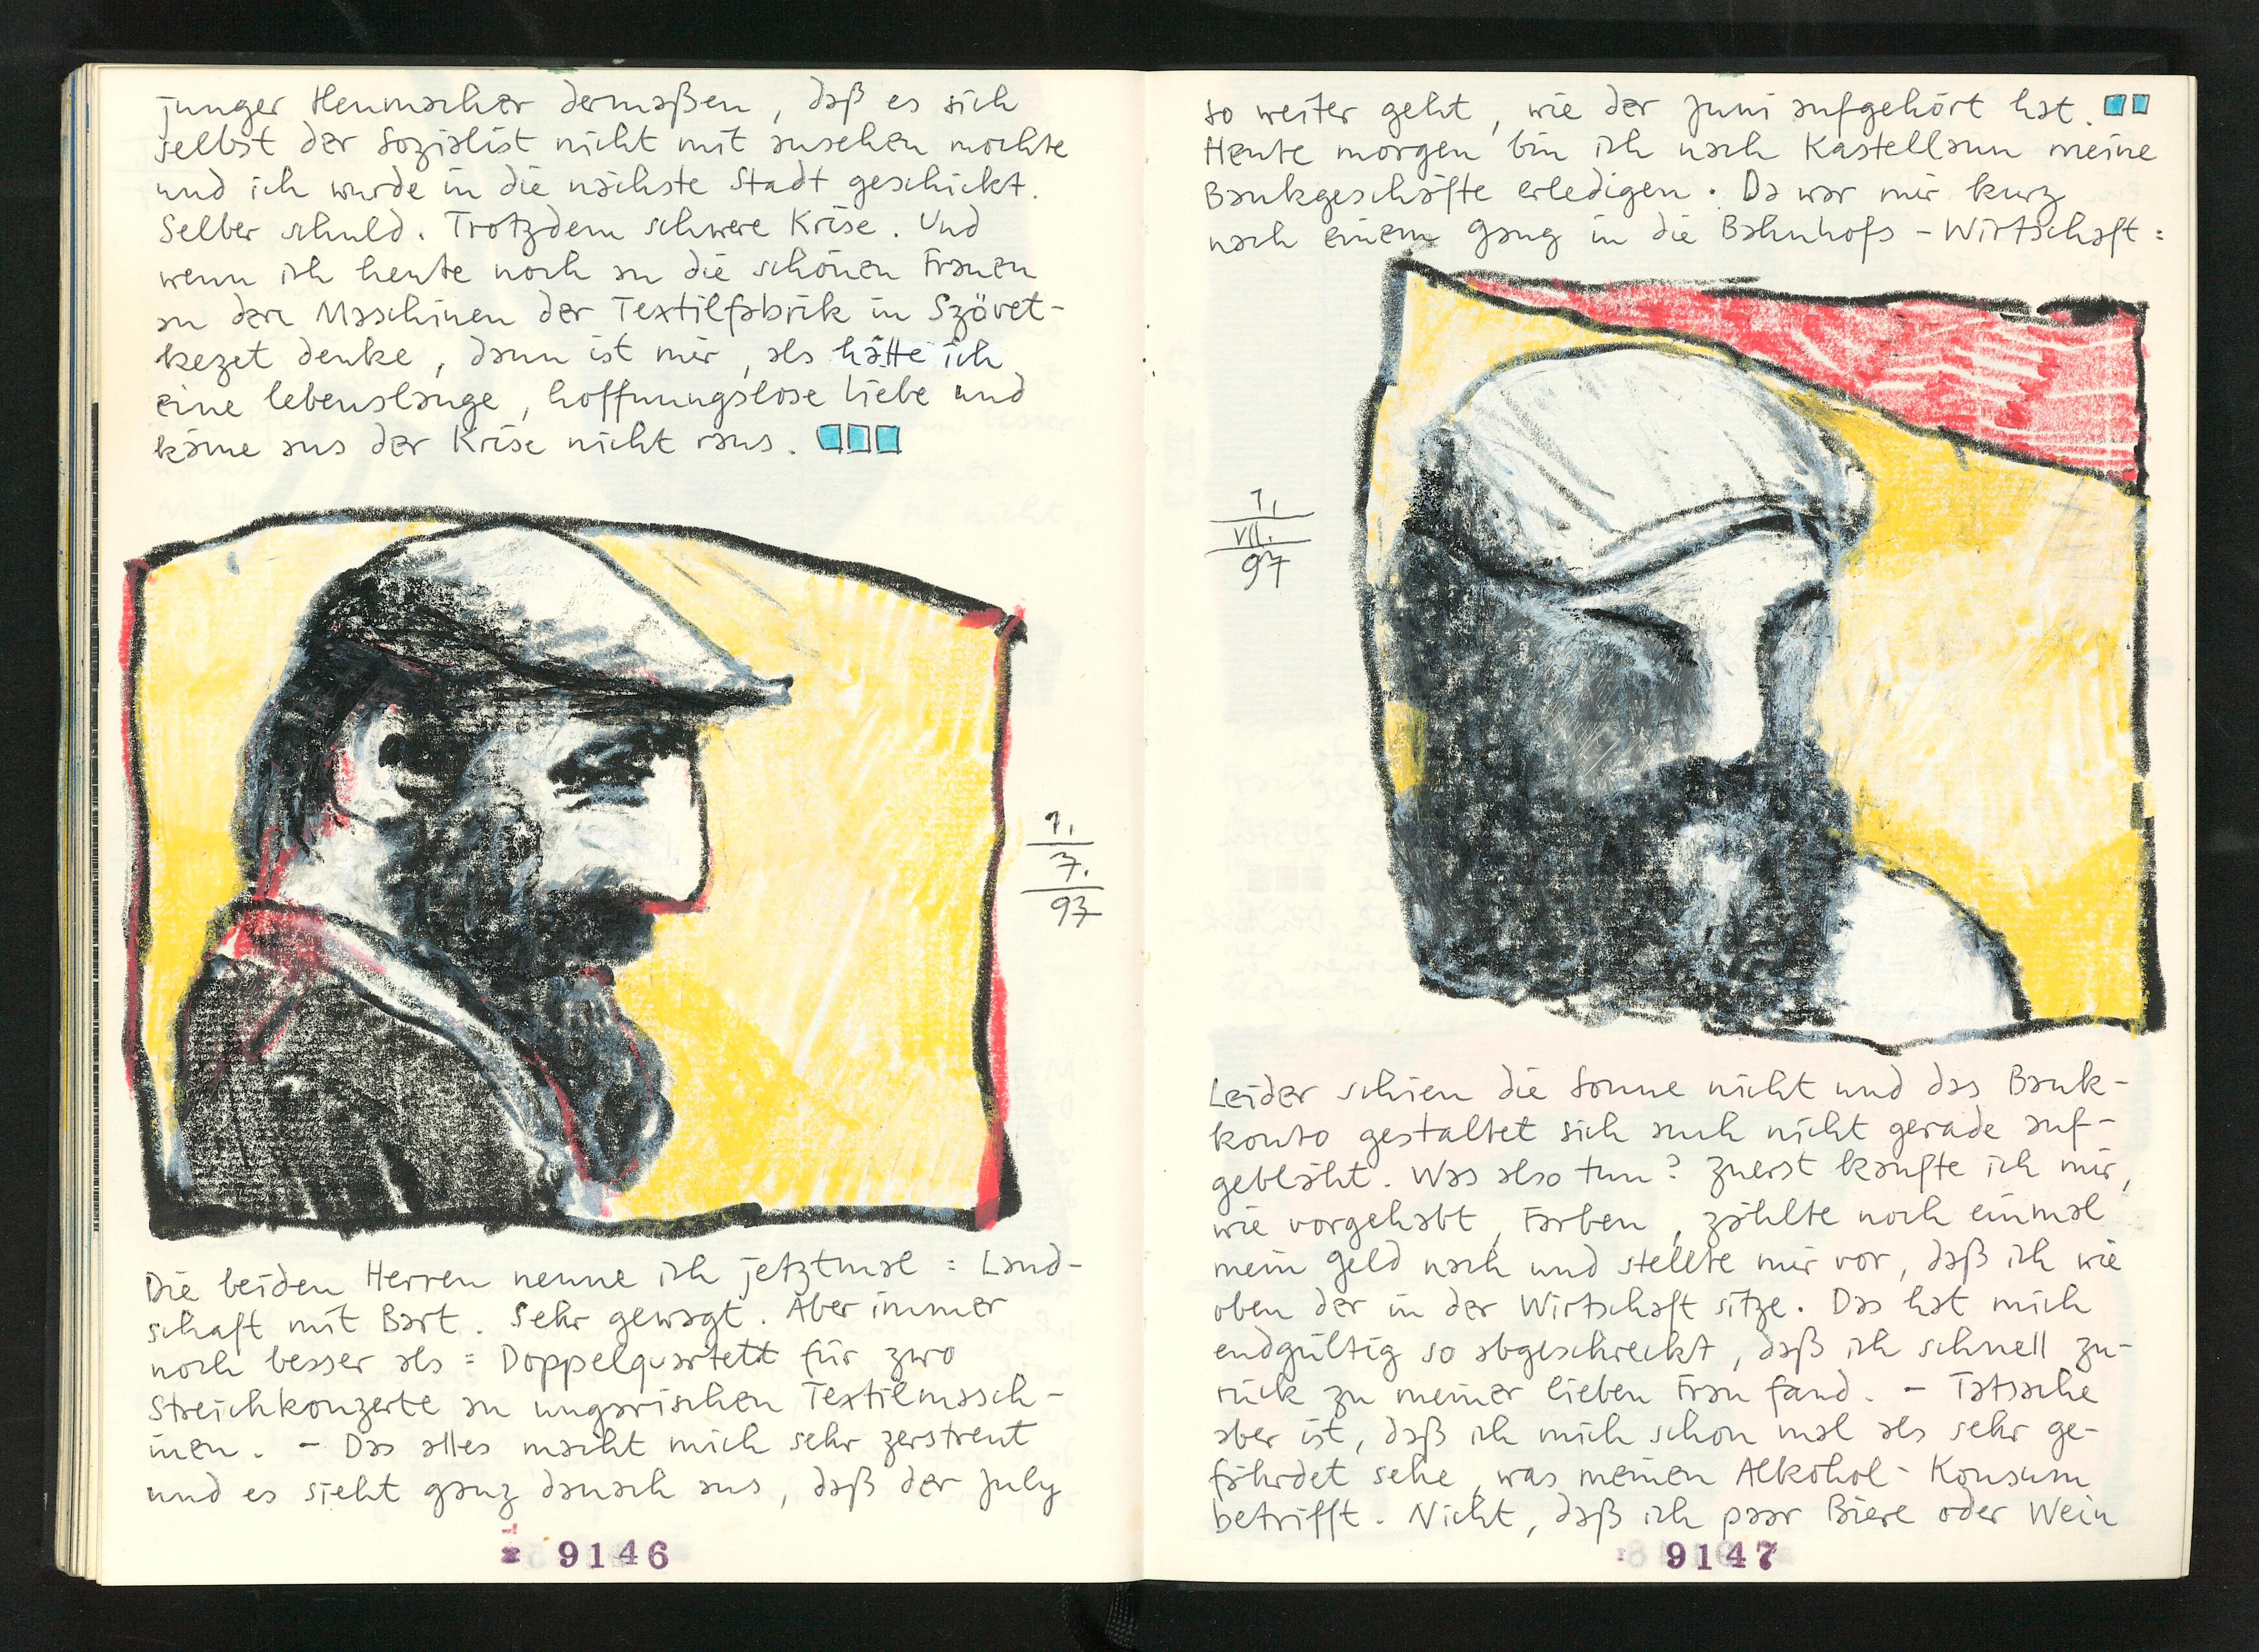 junger Heumacher dermaßen, daß es sich
selbst der Sozialist nicht mit ansehen mochte
und ich wurde in die nächste Stadt geschickt.
Selber schuld. Trotzdem schwere Krise. Und
wenn ich heute noch an die schönen Frauen
an den Maschinen der Textilfabrik in Szövet-
kezet denke, dann ist mir, als hätte ich
eine lebenslange, hoffnungslose Liebe und
käme aus der Krise nicht raus.
1.
7.
97
Die beiden Herren nenne ich jetztmal = Land-
schaft mit Bart. Sehr gewagt. Aber immer
noch besser als = Doppelquartett für zwo
Streichkonzerte an ungarischen Textilmasch-
inen. - Das alles macht mich sehr zerstreut
und es sieht ganz danach aus, daß der July
9146
so weiter geht, wie der Juni aufgehört hat.
Heute morgen bin ich nach Kastellaun meine
Bankgeschäfte erledigen. Da war mir kurz
nach einem Gang in die Bahnhofs-Wirtschaft:
1.
VII.
97
Leider schien die Sonne nicht und das Bank-
konto gestaltet sich auch nicht gerade auf-
gebläht. Was also tun? Zuerst kaufte ich mir,
wie vorgehabt, Farben, zählte noch einmal
mein Geld nach und stellte mir vor, daß ich wie
oben der in der Wirtschaft sitze. Das hat mich
endgültig so abgeschreckt, daß ich schnell zu-
rück zu meiner lieben Frau fand. - Tatsache
aber ist, daß ich mich schon mal als sehr ge-
fährdet sehe, was meinen Alkohol-Konsum
betrifft. Nicht, daß ich paar Biere oder Wein
9147